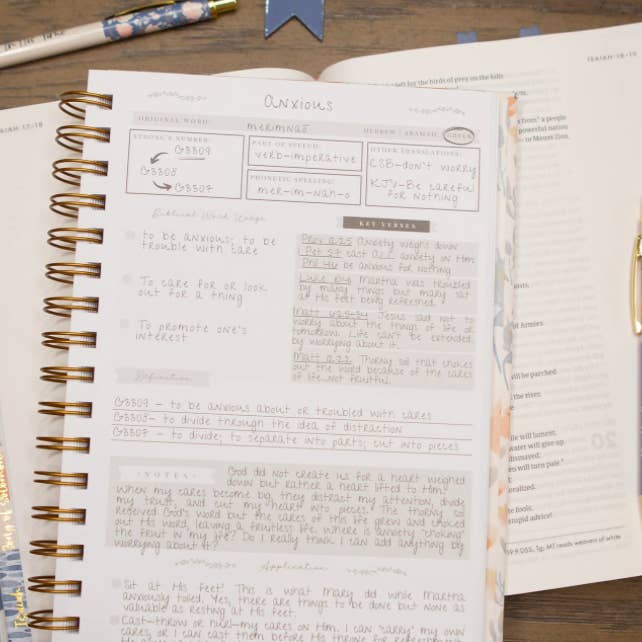 anxious
ORIGINAL WORD:
merimnaō
HEBREW | ARAMAIC | GREEK
STRONG'S NUMBER:
G3309
G3308
G3307
PART OF SPEECH:
verb-imperative
PHONETIC SPELLING:
mer-im-nah-o
OTHER TRANSLATIONS:
CSB-don't worry
KJV-Be careful
for nothing
Biblical Word Usage
to be anxious; to be
trouble with care
To care for or look
out for a thing
To promote one's
interest
KEY VERSES
Prov 12:25 Anxiety weighs down
1 Pet 5:7 cast ALL anxiety on Him
Phil 4:6 be anxious for nothing
Luke 10:41 Martha was troubled
by many things but mary sat
at His feet being refreshed.
Jesus said not to
worry about the things of life or
tomorrow. Life can't be extended
by worrying about it.
Matt 13:22 Thorny soil that chokes
out the word because of the cares
of life...not fruitful.
Definition
G3309 - to be anxious about or troubled with cares
G3308- to divide through the idea of distraction
G3307 - to divide; to separate into parts; cut into pieces
NOTES
God did not create us for a heart weighed
down but rather a heart lifted to Him.
When my cares become big, they distract my attention, divide
my trust, and cut my "heart" into pieces. The thorny soil
received God's word but the cares of this life grew and choked
out His Word, leaving a fruitless life. Where is anxiety "choking"
the fruit in my life? Do I really think I can add anything by
worrying about it?
Application
Sit at His feet! This is what mary did while Martha
anxiously toiled. Yes, there are things to be done but none as
valuable as resting at His feet.
Cast-throw or hurl-my cares on Him. I can "carry" my own
cares, or I can cast them before His throne for
ISAIAH 17-18
ISAIAH 18-19
left for the birds of prey on the
from," a people
powerful nation
to Mount Zion,
of Armies.
will be parched.
the river,
will lament,
water will give up.
dismayed;
will turn pale."
fools;
stupid advice!
Song of Solomon
Isaiah